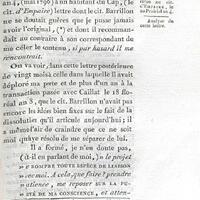 an 4, (mai 1790) à un habitant du Cap, (le
cit. d'Empaire) lettre dont le cit. Barrillon
ne se doutait guères que je pusse jamais
avoir l'original, (*) et dont il recomman-
dait au contraire à son correspondant de
me céler le contenu, si par hasard il me
rencontrait.
On va voir, dans cette lettre postérieure
de vingt mois à celle dans laquelle il avait
déploré et taché d'atténuer sa honte de
la transaction passée avec Caillat le 18 flo-
réal an 3, que Barrillon n'avait pas
encore les idées bien fixes sur le fait de la
dissolution qu'il articule aujourd'hui; il
a même l'air de craindre que ce ne soit
moi qui aye résolu de me séparer de lui.
Il a formé, je n'en doute pas,
(dit-il en parlant de moi,) le projet
rompre toute espèce de liaison
vec moi. A cela, que faire? prendre
atience, me reposer sur la pu-
ité de ma conscience, et atten-
Analyse de
cette lettre.